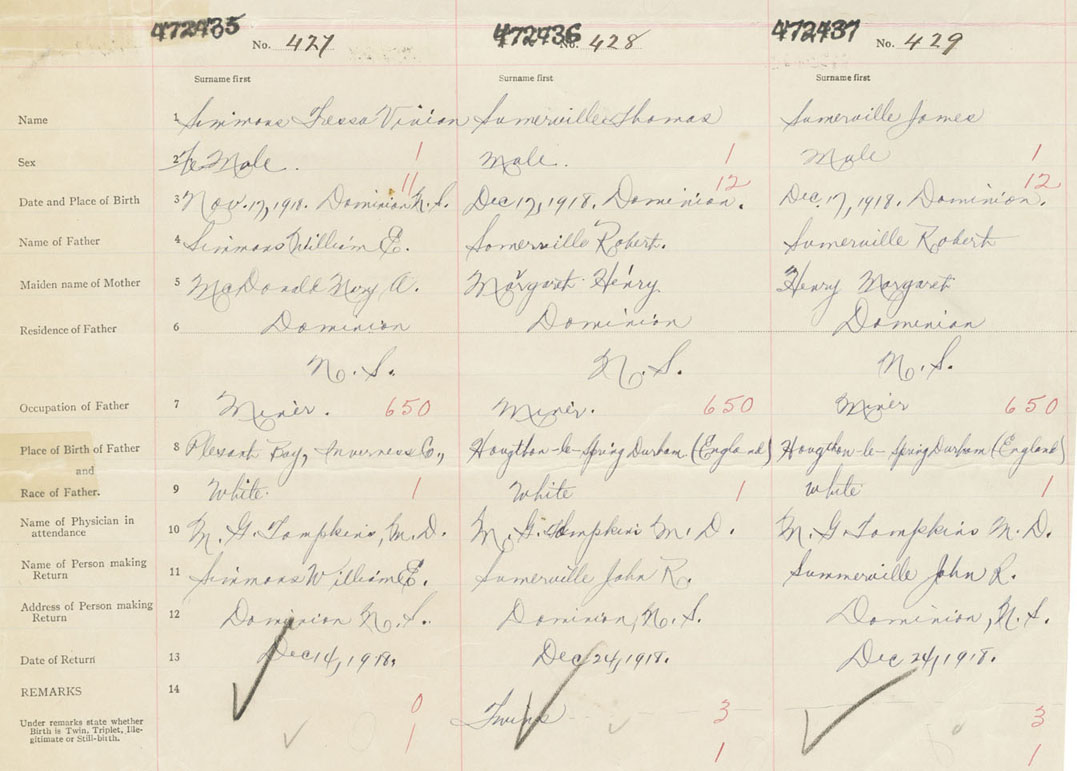 472435 472436 472437
No. 427 No. 428 No. 429
Surname first Surname first Surname first
Name 1 Simmons Tressa Vivian Sumerville Thomas Sumerville James
Sex 2 Male. 1 Male. 1 Male 1
11 12 12
Date and Place of Birth 3 Nov. 17, 1918. Dominion N.S. Dec 17, 1918. Dominion. Dec. 17, 1918. Dominion.
Name of Father 4 Simmons William E. Somerville Robert. Sumerville Robert
Maiden name of Mother 5 McDonald Mary A. Margaret Henry. Henry Margaret
Residence of Father 6 Dominion Dominion Dominion
N.S. N.S. N.S.
Occupation of Father 7 Miner. 650 Miner. 650 Miner 650
Place of Birth of Father 8 Plesant Bay, Inverness Co., Hougthon-le-Spring Durham (England) Hougthon-le-Spring Durham (England)
and
Race of Father. 9 White. 1 White 1 White 1
Name of Physician in attendance 10 M. G. Tompkins, M.D. M. G. Tompkins M.D. M. G Tompkins M.D.
Name of Person making Return 11 Simmons William E. Sumerville John R. Summerville John R.
Address of Person making Return 12 Dominion N.S. Dominion, N.S. Dominion, N.S.
Date of Return 13 Dec 14, 1918, Dec 24, 1918. Dec 24, 1918.
REMARKS 14
0 Twins 3 3
Under remarks state whether Birth is Twin, Triplet, Ille-
gitimate or Still-birth. 1 1 1